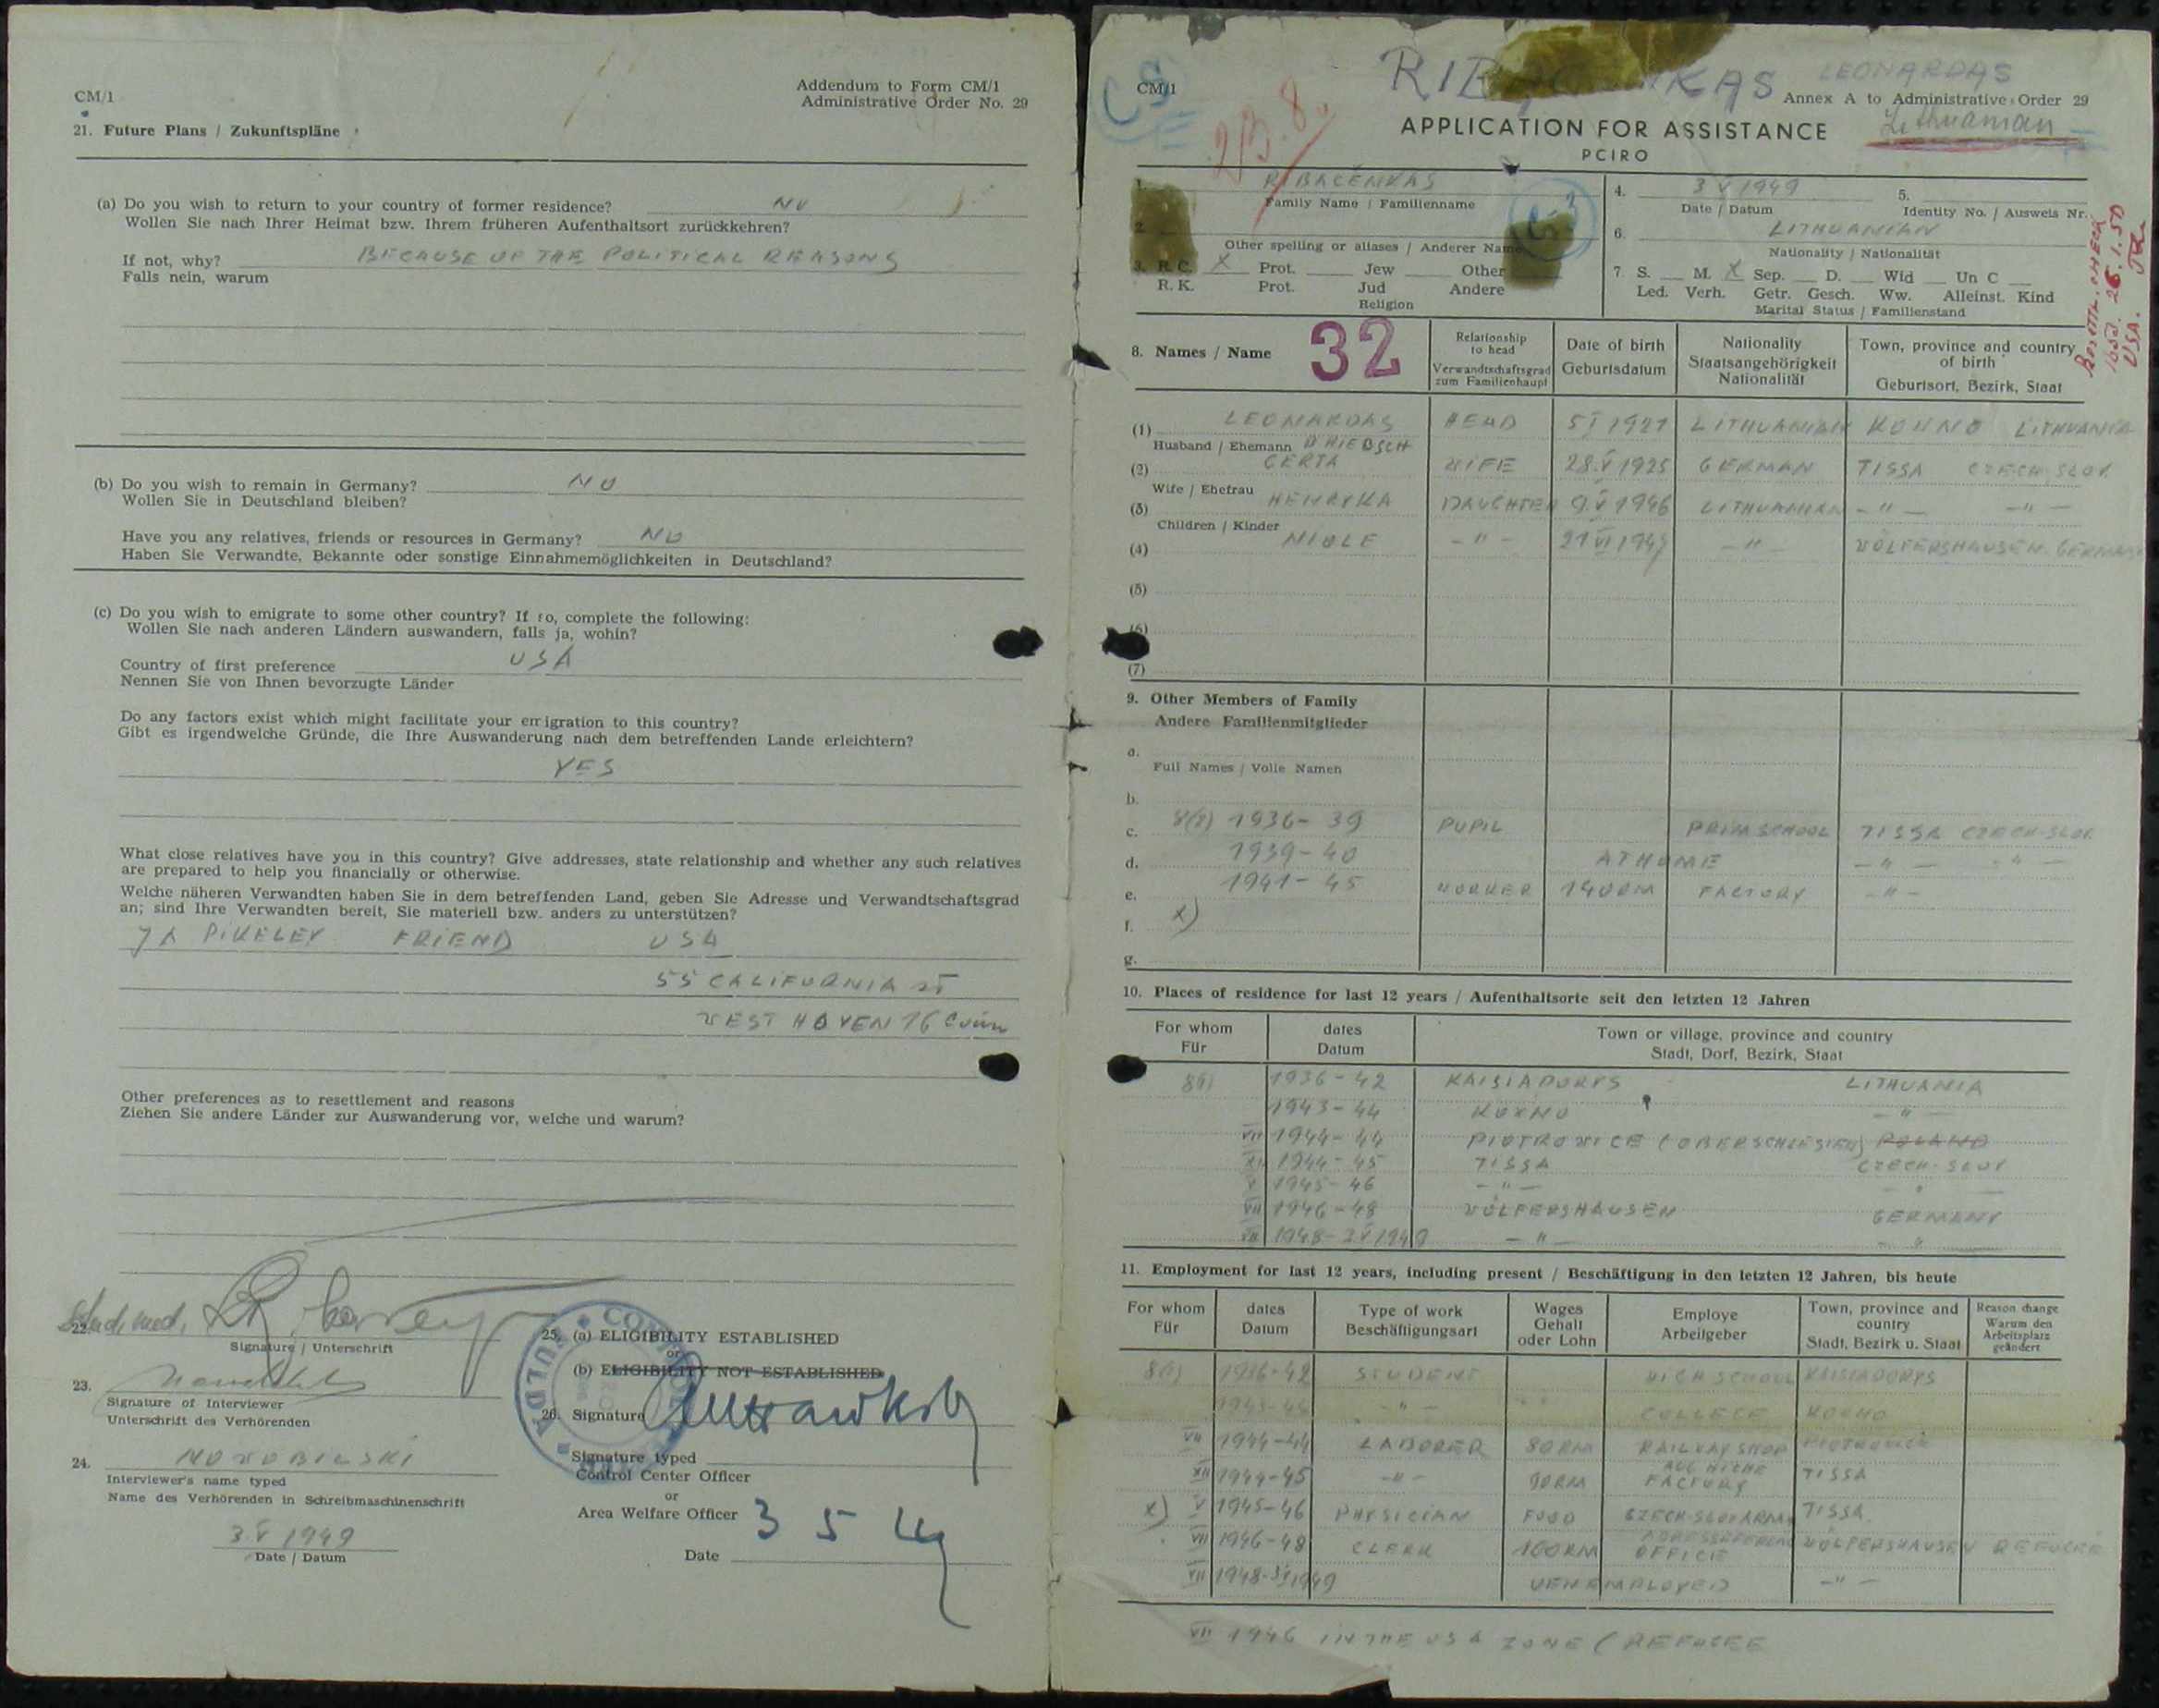 CM/1
Addendum to Form CM/1
Administrative Order No. 29
21. Future Plans / Zukunftspläne
(a) Do you wish to return to your country of former residence? NO
Wollen Sie nach Ihrer Heimat bzw. Ihrem früheren Aufenthaltsort zurückkehren?
If not, why? BECAUSE OF THE POLITICAL REASONS
Falls nein, warum
(b) Do you wish to remain in Germany? NO
Wollen Sie in Deutschland bleiben?
Have you any relatives, friends or resources in Germany? NO
Haben Sie Verwandte, Bekannte oder sonstige Einnahmemöglichkeiten in Deutschland?
(c) Do you wish to emigrate to some other country? If so, complete the following:
Wollen Sie nach anderen Ländern auswandern, falls ja, wohin?
Country of first preference USA
Nennen Sie von Ihnen bevorzugte Länder
Do any factors exist which might facilitate your emigration to this country?
Gibt es irgendwelche Gründe, die Ihre Auswanderung nach dem betreffenden Lande erleichtern?
YES
What close relatives have you in this country? Give addresses, state relationship and whether any such relatives
are prepared to help you financially or otherwise.
Welche näheren Verwandten haben Sie in dem betreffenden Land, geben Sie Adresse und Verwandtschaftsgrad
an; sind Ihre Verwandten bereit, Sie materiell bzw. anders zu unterstützen?
PIKELEY FRIEND USA
55 CALIFORNIA ST
WEST HAVEN 16 Conn
Other preferences as to resettlement and reasons
Ziehen Sie andere Länder zur Auswanderung vor, welche und warum?
22. Stud. med.
Signature / Unterschrift
23.
Signature of Interviewer
Unterschrift des Verhörenden
24. NOWOBILSKI
Interviewer's name typed
Name des Verhörenden in Schreibmaschinenschrift
3 V 1949
Date / Datum
25. (a) ELIGIBILITY ESTABLISHED
or
(b) ELIGIBILITY NOT ESTABLISHED
26. Signature
Signature typed
Control Center Officer
or
Area Welfare Officer
3 5 49
Date
CM/1
LEONARDAS
Annex A to Administrative Order 29
2B.8.
APPLICATION FOR ASSISTANCE
Lithuanian
PCIRO
1. RIBAČENKAS
Family Name / Familienname
2.
Other spelling or aliases / Anderer Name
3. R. C. X Prot. Jew Other
R. K. Prot. Jud Andere
Religion
4. 3 V 1949
Date / Datum
5.
Identity No. / Ausweis Nr.
6. LITHUANIAN
Nationality / Nationalität
7. S. M. X Sep. D. Wid Un C
Led. Verh. Getr. Gesch. Ww. Alleinst. Kind
Marital Status / Familienstand
26.1.50
USA.
8. Names / Name 32
Relationship to head
Verwandtschaftsgrad zum Familienhaupt
Date of birth
Geburtsdatum
Nationality
Staatsangehörigkeit
Nationalität
Town, province and country of birth
Geburtsort, Bezirk, Staat
(1) LEONARDAS HEAD 5 I 1921 LITHUANIAN KOWNO LITHUANIA
Husband / Ehemann
(2) GERTA WIFE 28.V 1925 GERMAN TISSA CZECH-SLOV
Wife / Ehefrau
(3) HENRYKA DAUGHTER 9.V 1946 LITHUANIAN -"- -"-
Children / Kinder
(4) NIOLE -"- 21 VI 1947 -"- WÖLFERSHAUSEN GERMANY
(5)
(6)
(7)
9. Other Members of Family
Andere Familienmitglieder
a.
Full Names / Volle Namen
b.
c. 8(2) 1936-39 PUPIL PRIM SCHOOL TISSA CZECH-SLOV
d. 1939-40 AT HOME -"- -"-
e. 1941-45 WORKER 140 RM FACTORY -"-
f. x)
g.
10. Places of residence for last 12 years / Aufenthaltsorte seit den letzten 12 Jahren
For whom
Für
dates
Datum
Town or village, province and country
Stadt, Dorf, Bezirk, Staat
8(1) 1936-42 KAISIADORYS LITHUANIA
1943-44 KOWNO -"-
VII 1944-44 PIOTROWICE (OBERSCHLESIEN) POLAND
XII 1944-45 TISSA CZECH-SLOV
V 1945-46 -"- -"-
VII 1946-48 WÖLFERSHAUSEN GERMANY
VII 1948-3 V 1949 -"- -"-
11. Employment for last 12 years, including present / Beschäftigung in den letzten 12 Jahren, bis heute
For whom
Für
dates
Datum
Type of work
Beschäftigungsart
Wages
Gehalt
oder Lohn
Employe
Arbeitgeber
Town, province and country
Stadt, Bezirk u. Staat
Reason change
Warum den
Arbeitsplatz
geändert
8(1) 1936-42 STUDENT HIGH SCHOOL KAISIADORYS
1943-44 -"- COLLEGE KOWNO
VII 1944-44 LABORER 80 RM RAILWAY SHOP PIOTROWICE
XII 1944-45 -"- 90 RM FACTORY TISSA
x) V 1945-46 PHYSICIAN FOOD CZECH-SLOV ARMY TISSA
VII 1946-48 CLERK 160 RM OFFICE WÖLFERSHAUSEN REFUGEE
VII 1948-3 V 1949 UENEMPLOYED -"-
VII 1946 IN THE USA ZONE (REFUGEE